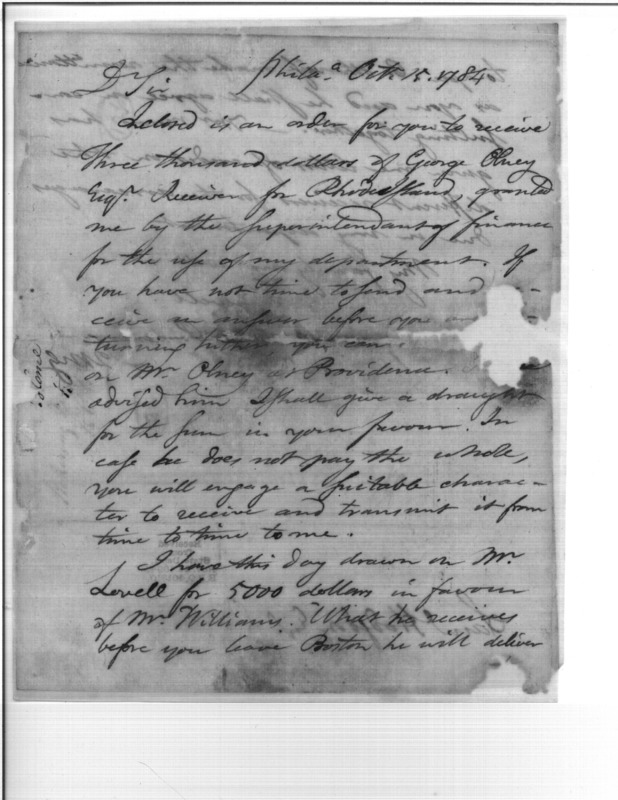 Phila.a Oct. 15. 1784
Dr Sir
Inclosed is an order for you to receive
Three thousand dollars of George Olney
Esqr. Receiver for Rhode Island, granted
me by the Superintendant of finance
for the use of my department. If
you have not time to send and re-
ceive an answer before you
turning hither, you can
on Mr. Olney at Providence.
advised him I shall give a draught
for the sum in your favour. In
case he does not pay the whole,
you will engage a suitable charac-
ter to receive and transmit it from
time to time to me.
I have this day drawn on Mr.
Lovell for 5000 dollars in favour
of Mr. Williams. What he receives
before you leave Boston he will deliver